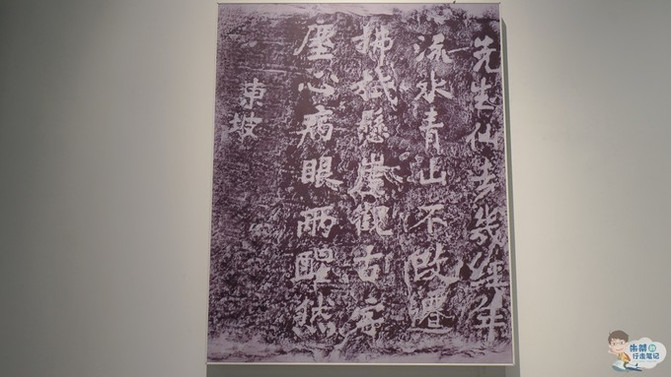 先生仙去幾經年
流水青山不改遷
拂拭懸崖觀古字
塵心病眼兩醒然
東坡
的
行走笔记